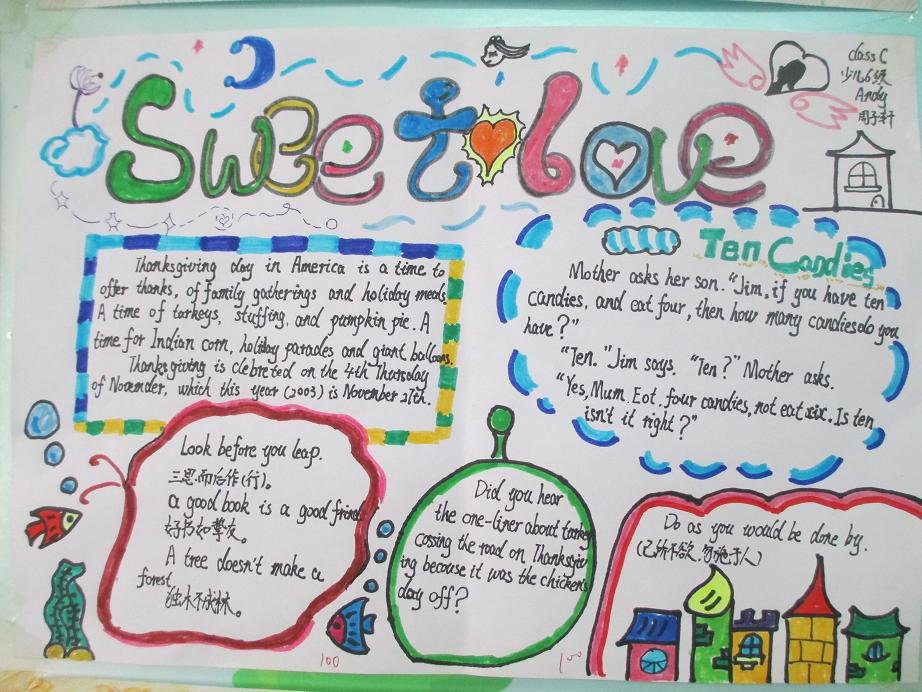 Sweet love
class C
少儿6级
Andy
周子轩
Thanksgiving day in America is a time to
offer thanks, of family gatherings and holiday meals.
A time of torkeys, stuffing, and pumpkin pie. A
time for Indian corn, holiday parades and giant balloons.
Thanksgiving is clebreted on the 4th Thursday
of Novemder, which this year (2003) is November 27th.
Ten Candies
Mother asks her son. "Jim, if you have ten
candies, and eat four, then how many candies do you
have?"
"Ten." Jim says. "Ten?" Mother asks.
"Yes, Mum. Eot. four candies, not eat six. Is ten
isn't it right?"
Look before you leap.
三思而后作(行)。
a good book is a good friend
好书如挚友。
A tree doesn't make a
forest
独木不成林。
Did you hear
the one-liner about turkey
cossing the road on Thanksgiv
ing becouse it was the chicken's
day off?
Do as you would be done by.
(己所不欲,勿施于人)
100
100